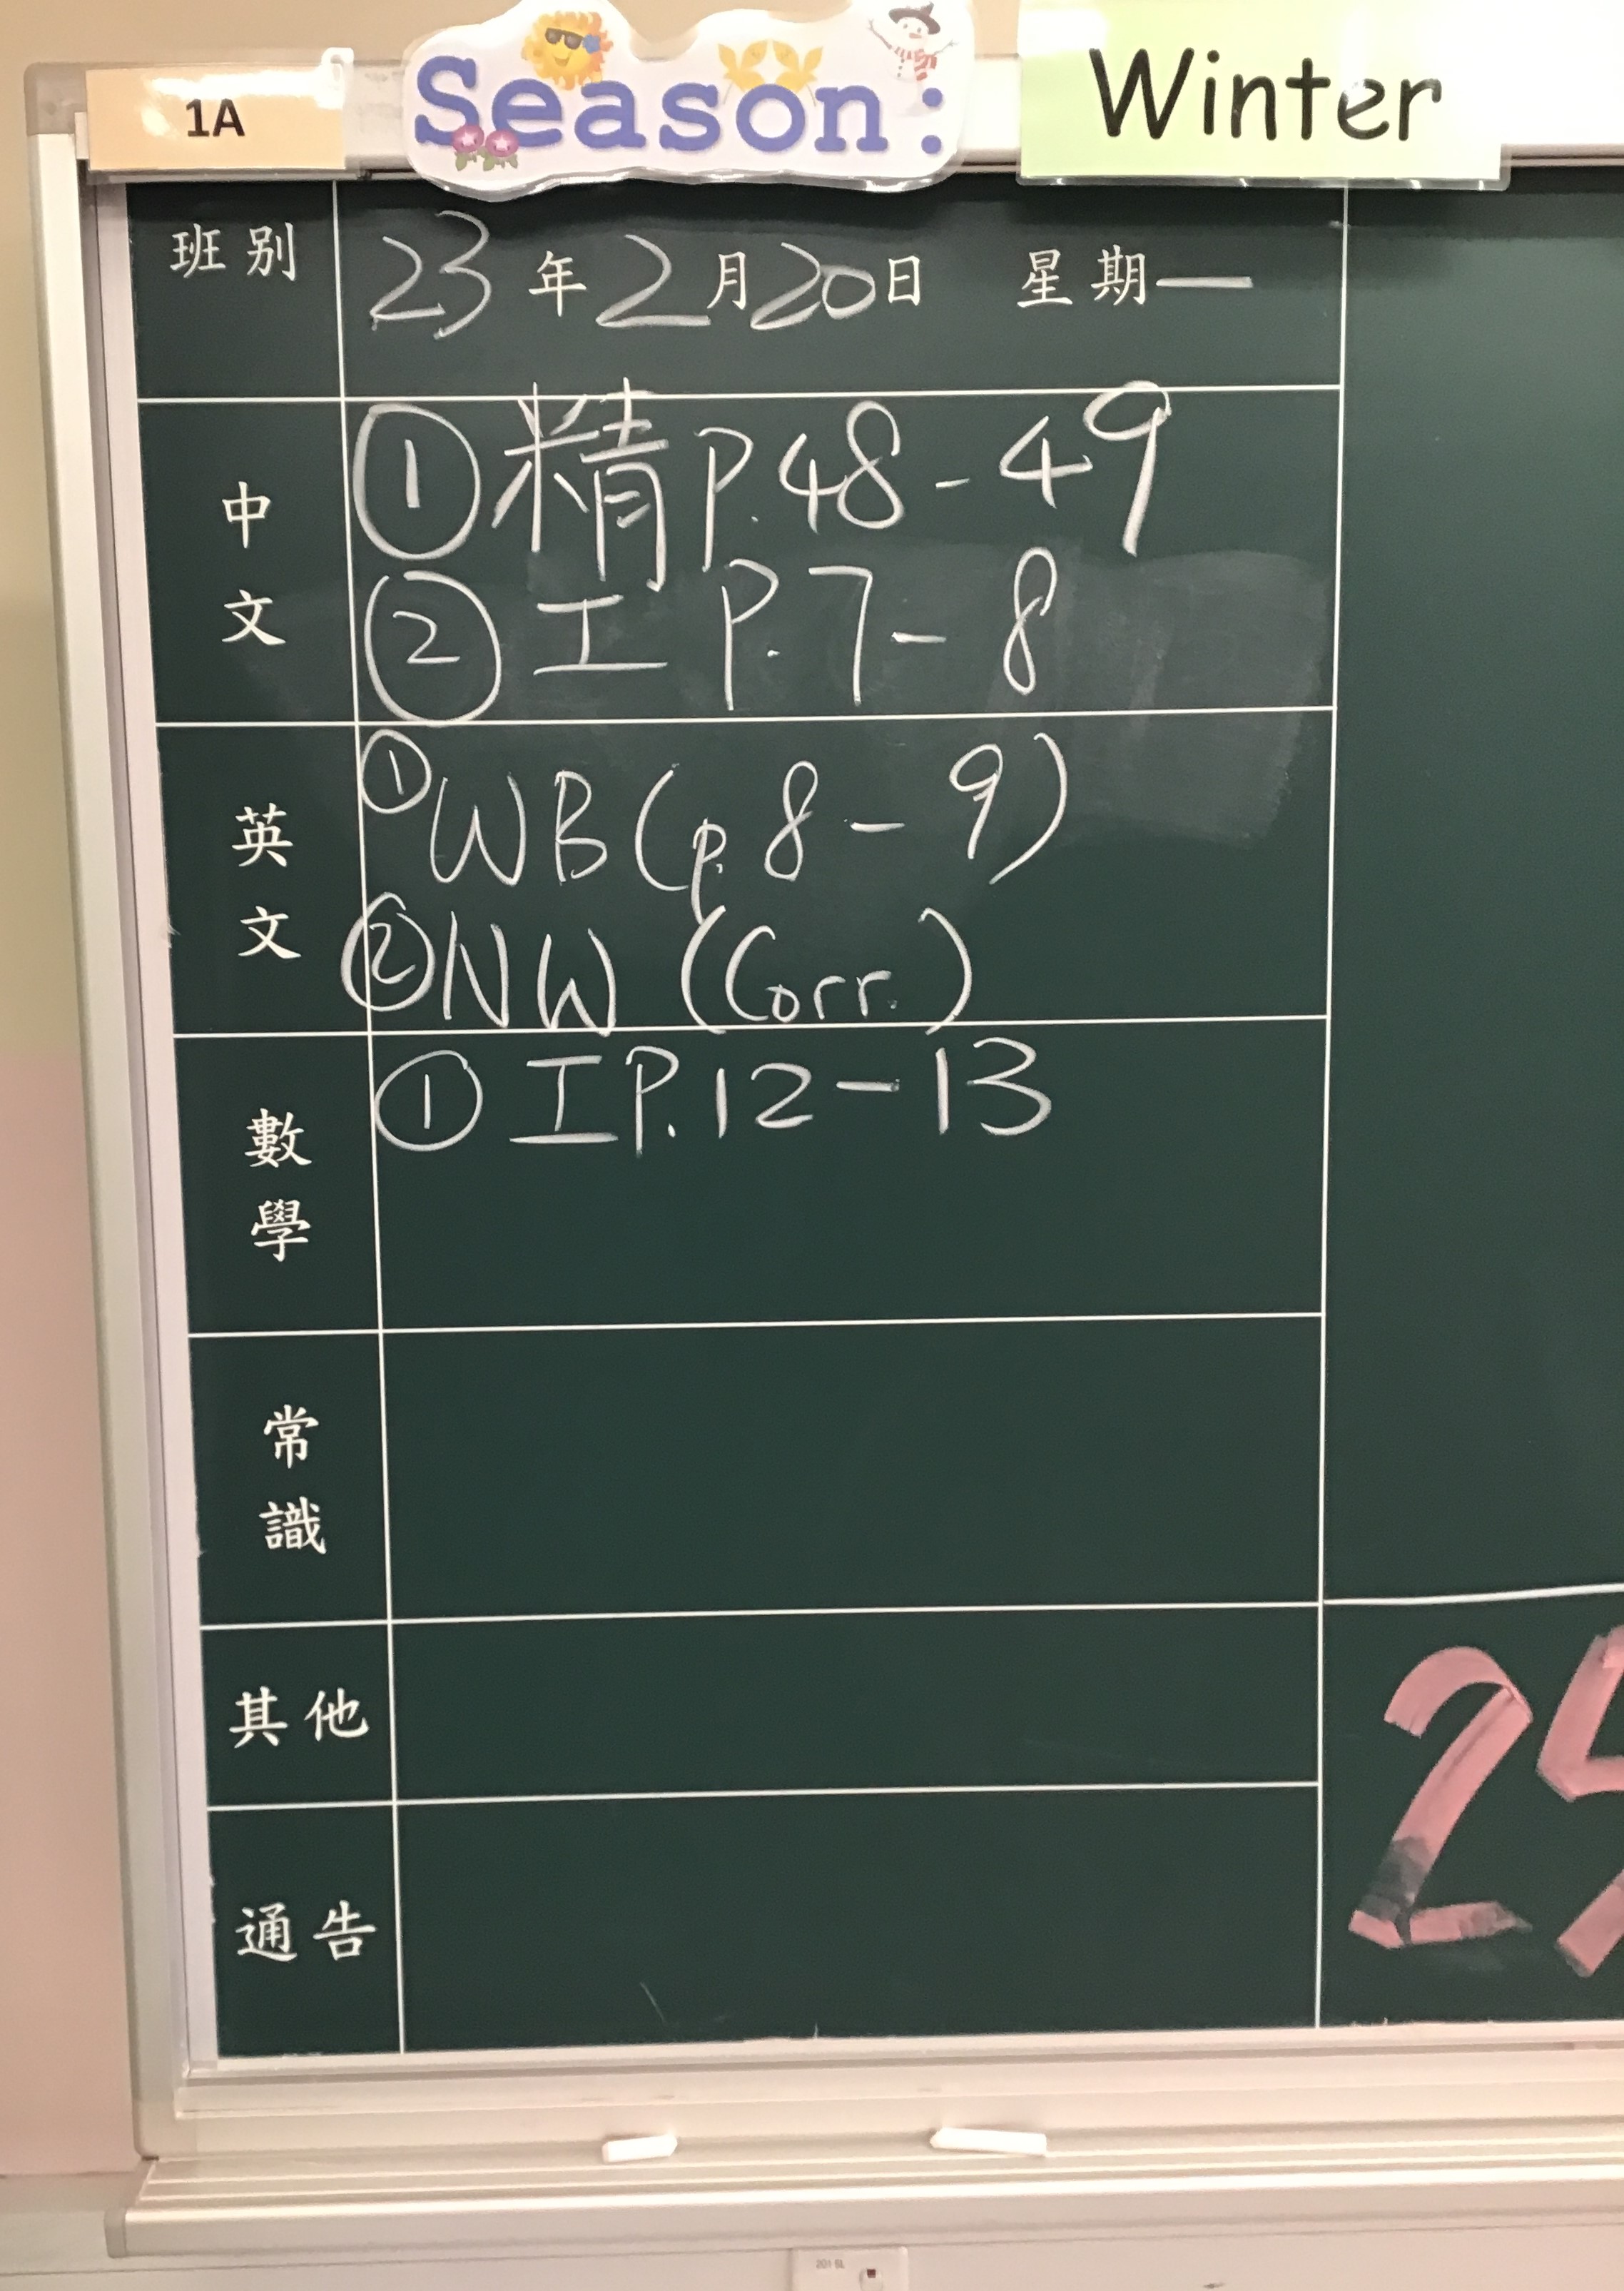 1A
Season:
Winter
班別
23年2月20日 星期一
中文
①精 P.48-49
②工 P.7-8
英文
①WB(p.8-9)
②NW (Corr.)
數學
①工P.12-13
常識
其他
通告